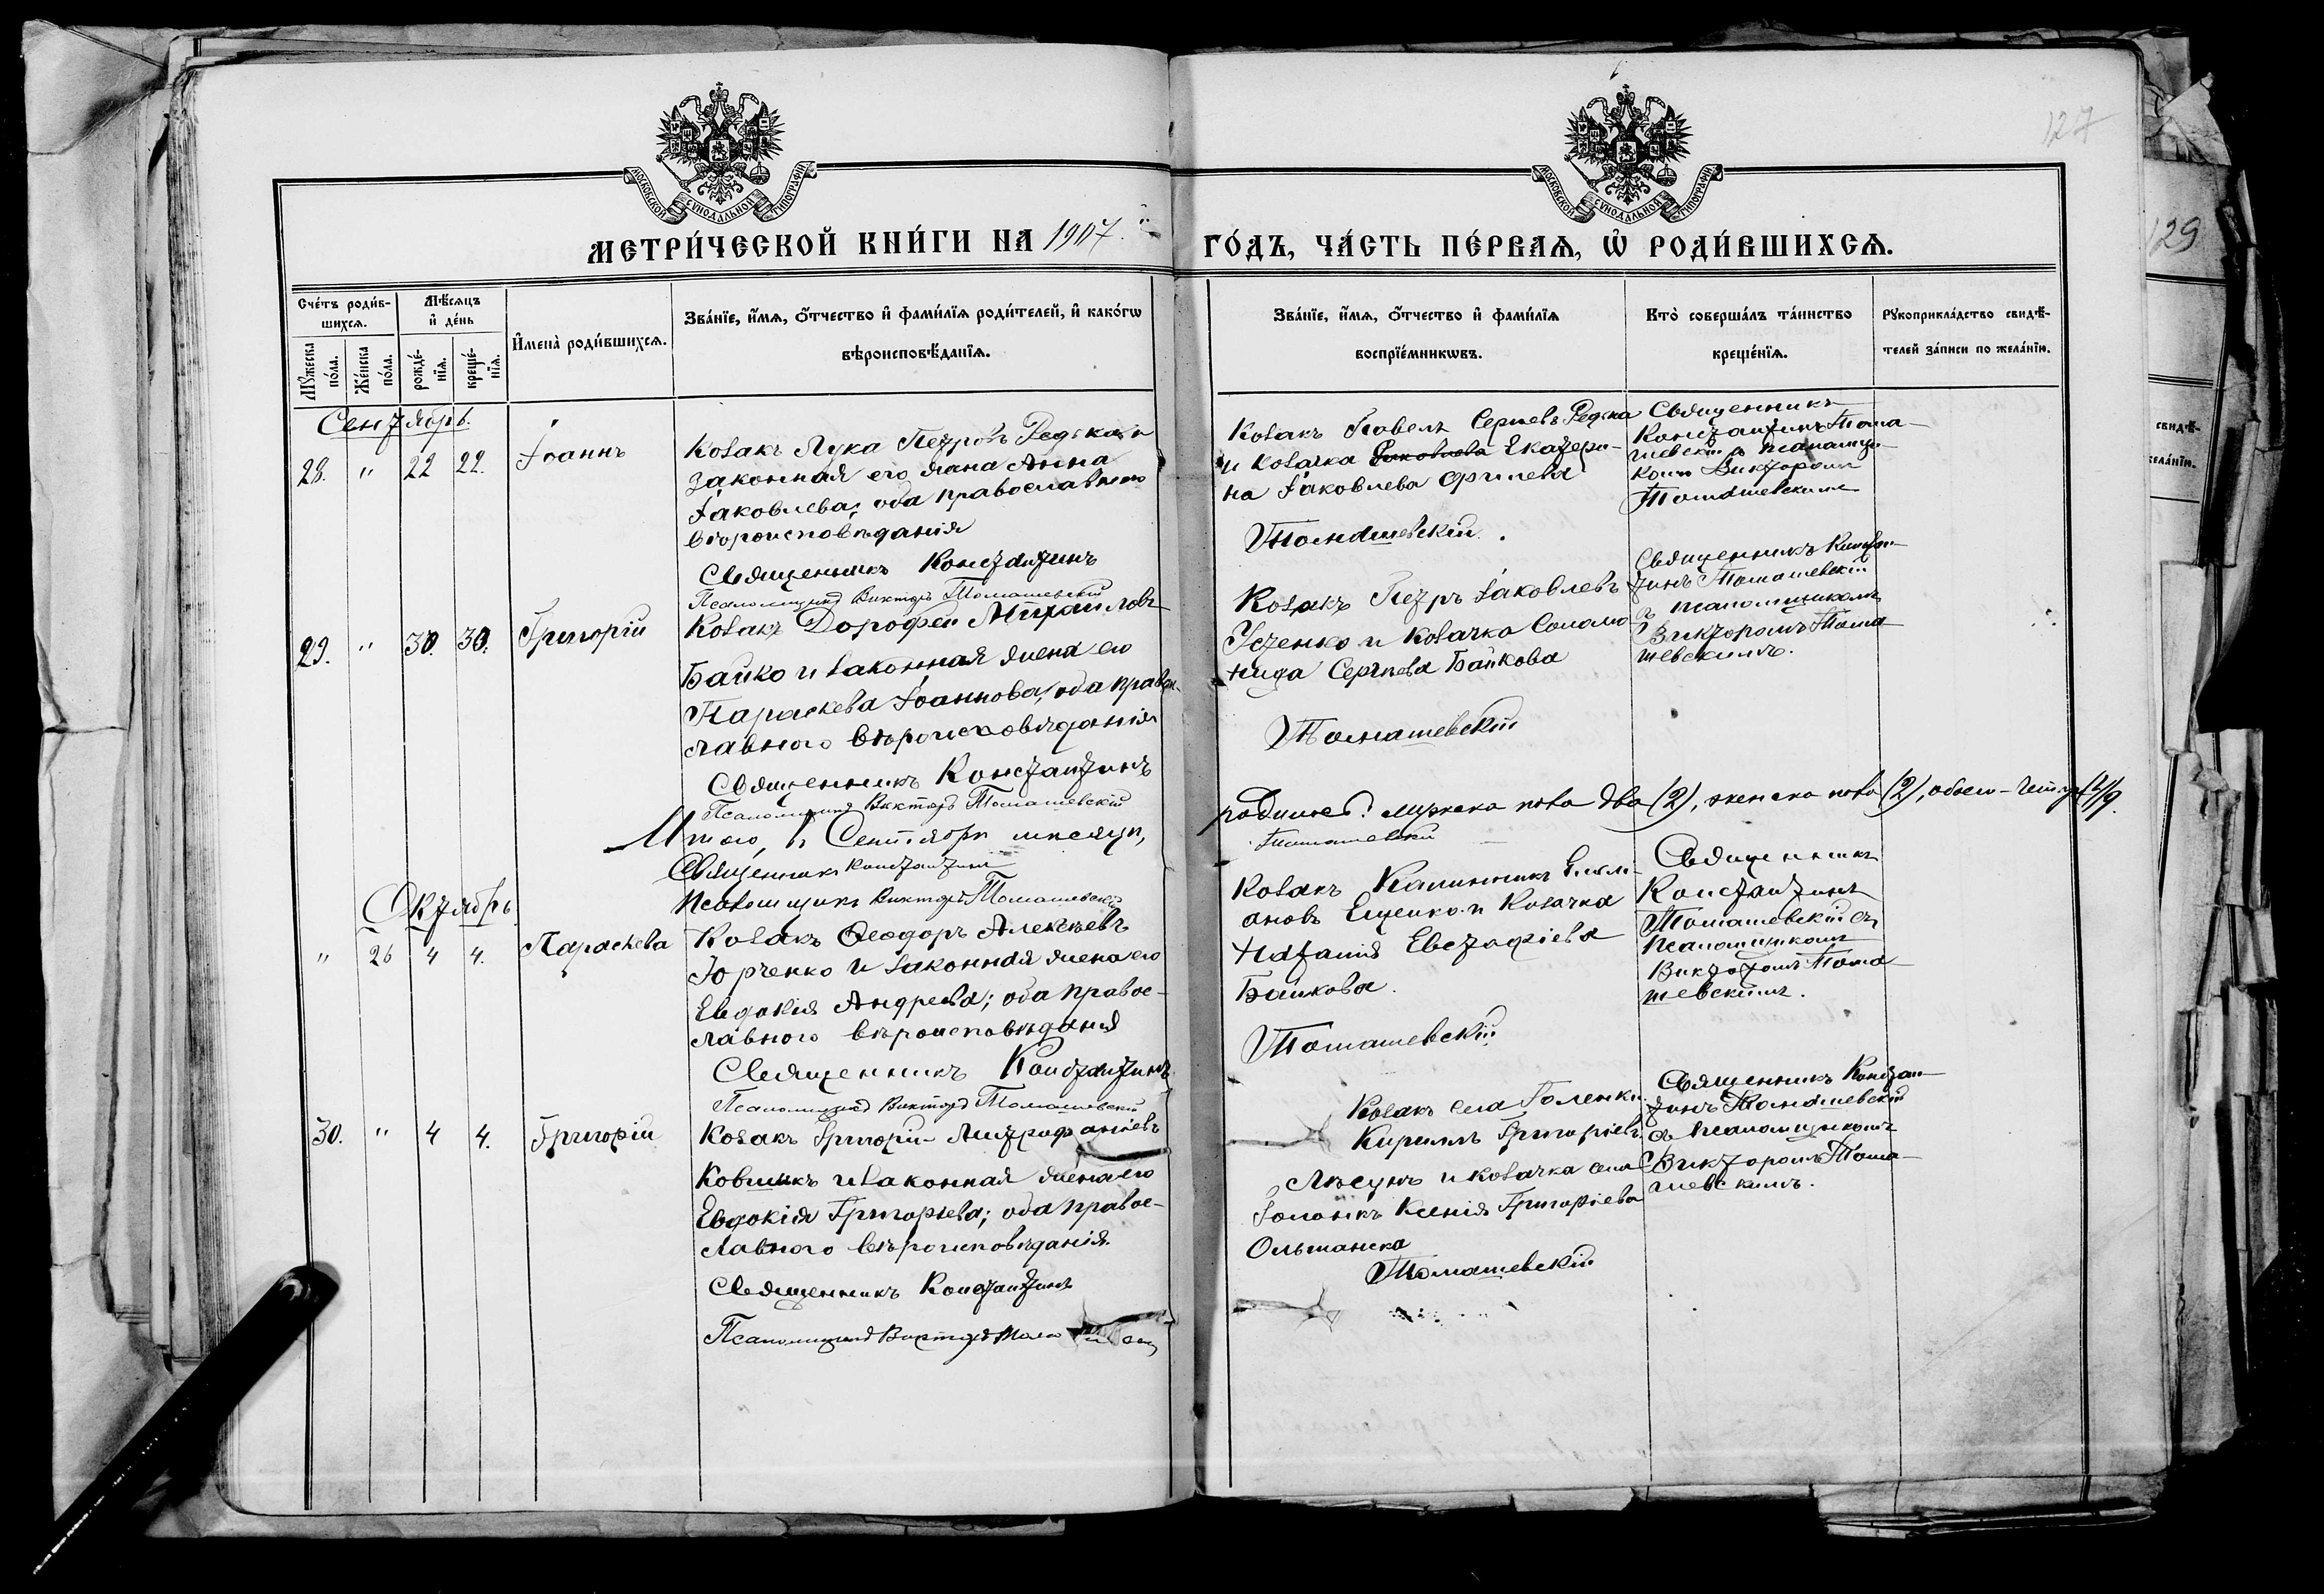 127
129
МОСКОВСКОЙ СѴНОДАЛЬНОЙ ТИПОГРАФІИ
МОСКОВСКОЙ СѴНОДАЛЬНОЙ ТИПОГРАФІИ
МЕТРИ́ЧЕСКОЙ КНИ́ГИ НА 1907.
ГО́ДЪ, ЧА́СТЬ ПЕ́РВАѦ, Ѡ҆ РОДИ́ВШИХСѦ.
Сче́тъ роди́в-
шихсѧ.
Мꙋ́жеска по́ла.
Же́нска по́ла.
Мѣ́сѧцъ
и҆ де́нь
рожде́-
нїѧ.
креще́-
нїѧ.
И҆мена̀ роди́вшихсѧ.
Зва́нїе, и҆́мѧ, ѻ҆́тчество и҆ фами́лїѧ роди́телей, и҆ како́гѡ
вѣроисповѣ́данїѧ.
Зва́нїе, и҆́мѧ, ѻ҆́тчество и҆ фами́лїѧ
воспрїе́мникѡвъ.
Кто̀ соверша́лъ та́инство
креще́нїѧ.
Рꙋкоприкла́дство свидѣ́-
телей за́писи по жела́нїю.
Сентябрь.
28. " 22 22. Іоаннъ
Козакъ Лука Петровъ Редька и
законная его жена Анна
Іаковлева; оба православнаго
вѣроисповѣданія
Священникъ Константинъ
Псаломщикъ Викторъ Томашевскій
Козакъ Павелъ Сергіевъ Редька
и козачка Екатери-
на Іаковлева
Томашевскій.
Священникъ
Константинъ Тома-
шевскій съ псаломщи-
комъ Викторомъ
Томашевскимъ
29. " 30. 30. Григорій
Козакъ Дорофей Михаиловъ
Байко и законная жена его
Параскева Іоаннова; оба правос-
лавнаго вѣроисповѣданія
Священникъ Константинъ
Псаломщикъ Викторъ Томашевскій
Козакъ Петръ Іаковлевъ
Устенко и козачка Соломо-
нида Сергіева Байкова
Томашевскій
Священникъ Констан-
тинъ Томашевскій
съ псаломщикомъ
Викторомъ Тома-
шевскимъ.
Итого, въ Сентябрѣ мѣсяцѣ,
родилось: мужска пола два (2), женска пола (2), обоего - четыре (4).
Священникъ Константинъ
Томашевскій
Псаломщикъ Викторъ Томашевскій
Октябрь
" 26 4 4. Параскева
Козакъ Ѳеодоръ Алексѣевъ
Юрченко и законная жена его
Евдокія Андреева; оба правос-
лавнаго вѣроисповѣданія
Священникъ Константинъ
Псаломщикъ Викторъ Томашевскій
Козакъ Калинникъ Емели-
ановъ Ещенко и козачка
Наталія Евстафіева
Байкова.
Томашевскій
Священникъ
Константинъ
Томашевскій съ
псаломщикомъ
Викторомъ Тома-
шевскимъ.
30. " 4 4. Григорій
Козакъ Григорій Митрофаніевъ
Ковшикъ и законная жена его
Евдокія Григорьева; оба правос-
лавнаго вѣроисповѣданія.
Священникъ Константинъ
Псаломщикъ Викторъ
Козакъ села Голенки
Кириллъ Григоріевъ
Лисунъ и козачка села
Голонкъ Ксенія Григоріева
Ольшанска
Томашевскій
Священникъ Констан-
тинъ Томашевскій
съ псаломщикомъ
Викторомъ Тома-
шевскимъ.